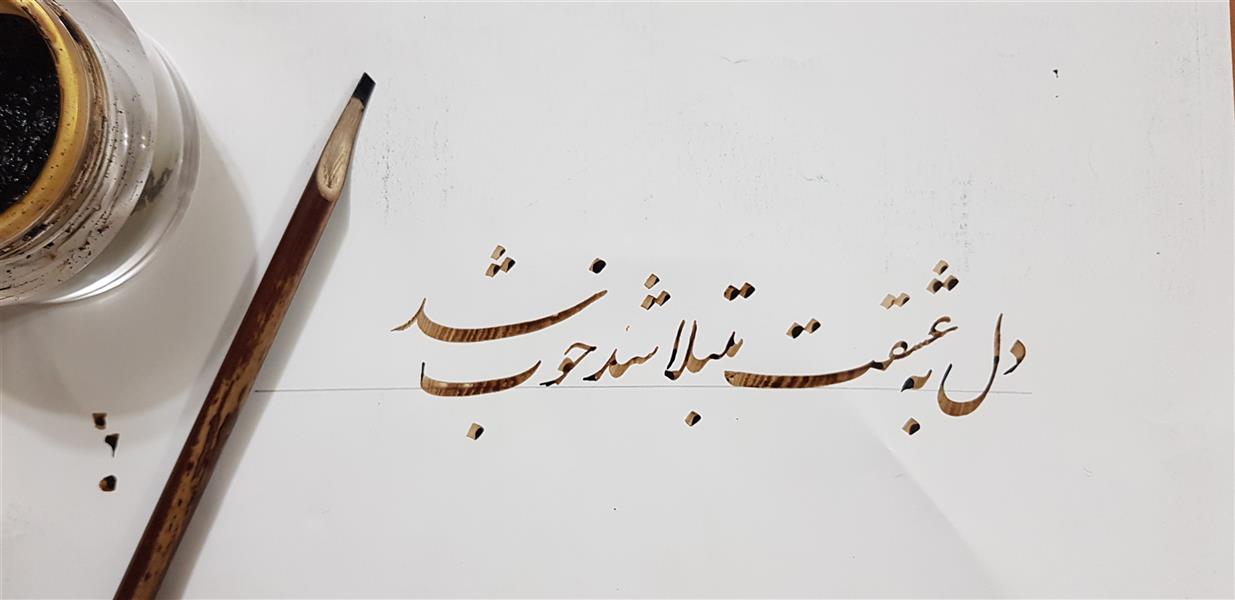 دل به عشقت مبتلا شد خوب شد